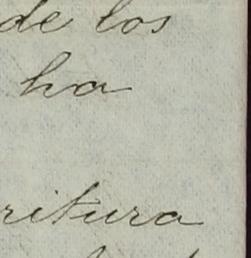 de los
ha
ritura